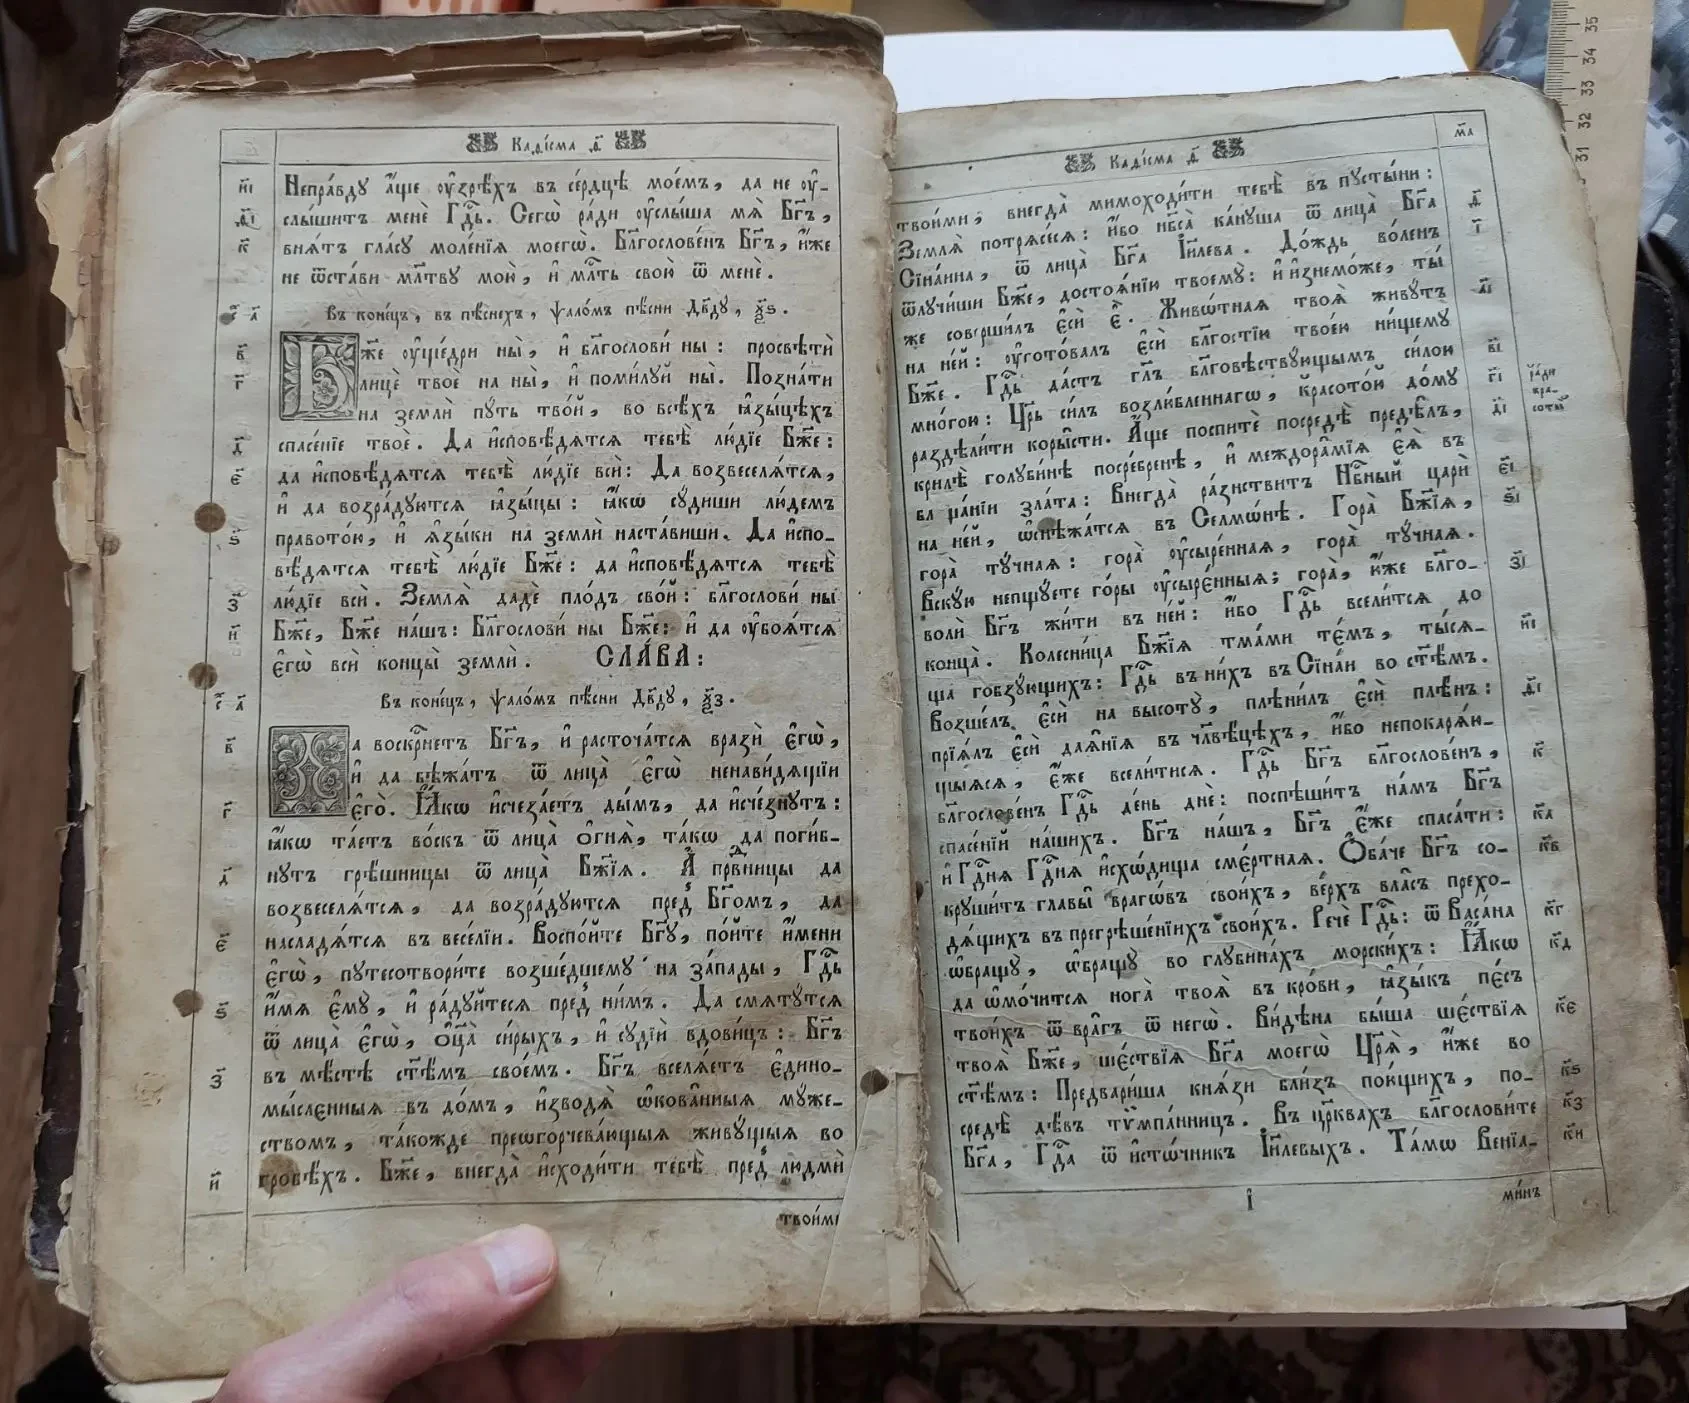 Каѳісма ѳ҃
Непра́вду а҆́ще ᲂу҆зрѣ́хъ въ се́рдцѣ мое́мъ, да не ᲂу҆-
слы́шитъ менѐ Гдⷭ҇ь. Сегѡ̀ ра́ди ᲂу҆слы́ша мѧ̀ Бг҃ъ,
внѧ́тъ гла́су моле́нїѧ моегѡ̀. Блгⷭ҇ове́нъ Бг҃ъ, и҆́же
не ѿста́ви мл҃тву мою̀, и҆ млⷭ҇ть свою̀ ѿ менѐ.
Въ коне́цъ, въ пѣ́снехъ, ѱало́мъ пѣ́сни Дв҃ду, ѯ҃ѕ.
Бж҃е ᲂу҆ще́дри ны̀, и҆ блг҃ослови́ ны: просвѣтѝ
лицѐ твоѐ на ны̀, и҆ поми́луй ны̀. Позна́ти
на землѝ пꙋ́ть тво́й, во всѣ́хъ ꙗ҆зы́цѣхъ
спасе́нїе твоѐ. Да и҆сповѣ́дѧтсѧ тебѣ̀ лю́дїе Бж҃е:
да и҆сповѣ́дѧтсѧ тебѣ̀ лю́дїе всѝ: Да возвеселѧ́тсѧ,
и҆ да возра́дꙋютсѧ ꙗ҆зы́цы: ꙗ҆́кѡ сꙋ́диши лю́демъ
правото́ю, и҆ ꙗ҆зы́ки на землѝ наста́виши. Да и҆спо-
вѣ́дѧтсѧ тебѣ̀ лю́дїе Бж҃е: да и҆сповѣ́дѧтсѧ тебѣ̀
лю́дїе всѝ. Землѧ̀ дадѐ пло́дъ сво́й: блг҃ослови́ ны
Бж҃е, Бж҃е на́шъ: Блг҃ослови́ ны Бж҃е: и҆ да ᲂу҆боѧ́тсѧ
є҆гѡ̀ всѝ концы̀ землѝ. СЛА́ВА:
Въ коне́цъ, ѱало́мъ пѣ́сни Дв҃ду, ѯ҃з.
Да воскрⷭ҇нетъ Бг҃ъ, и҆ расточа́тсѧ вразѝ є҆гѡ̀,
и҆ да бѣжа́тъ ѿ лица̀ є҆гѡ̀ ненави́дѧщїи
є҆гò. Ꙗ҆́кѡ и҆счеза́етъ ды́мъ, да и҆сче́знꙋтъ:
ꙗ҆́кѡ та́етъ во́скъ ѿ лица̀ ѻ҆гнѧ̀, та́кѡ да поги́б-
нꙋтъ грѣ́шницы ѿ лица̀ Бж҃їѧ. А҆ првⷣницы да
возвеселѧ́тсѧ, да возра́дꙋютсѧ пред̾ Бг҃омъ, да
насладѧ́тсѧ въ весе́лїи. Воспо́йте Бг҃ꙋ, по́йте и҆́мени
є҆гѡ̀, пꙋтесотвори́те возше́дшемꙋ на за́пады, Гдⷭ҇ь
и҆́мѧ є҆мꙋ̀, и҆ ра́дꙋйтесѧ пред̾ ни́мъ. Да смѧтꙋ́тсѧ
ѿ лица̀ є҆гѡ̀, ѻ҆ц҃а̀ си́рыхъ, и҆ сꙋдїѝ вдови́цъ: Бг҃ъ
въ мѣ́стѣ ст҃ѣ́мъ свое́мъ. Бг҃ъ вселѧ́етъ є҆дино-
мы́слєнныѧ въ до́мъ, и҆зводѧ̀ ѡ҆кова̑нныѧ мꙋ́же-
ствомъ, та́кожде преѡгорчева́ющыѧ живꙋ́щыѧ во
гробѣ́хъ. Бж҃е, внегда̀ и҆сходи́ти тебѣ̀ пред̾ людмѝ
твои́ми
Каѳісма ѳ҃
м҃а
твои́ми, внегда̀ мимоходи́ти тебѣ̀ въ пꙋсты́ни:
Землѧ̀ потрѧсе́сѧ: и҆́бо нб҃са̀ ка́нꙋша ѿ лица̀ Бг҃а
Сїна́ина, ѿ лица̀ Бг҃а І҆и҃лева. До́ждь во́ленъ
ѿлꙋчи́ши Бж҃е, достоѧ́нїю твоемꙋ̀: и҆ и҆знемо́же, ты́
же соверши́лъ є҆сѝ є҆̀. Живѡ́тнаѧ твоѧ̑ живꙋ́тъ
на не́й: ᲂу҆гото́валъ є҆сѝ блг҃остїю твое́ю ни́щемꙋ
Бж҃е. Гдⷭ҇ь да́стъ гл҃ъ блг҃овѣствꙋ́ющымъ си́лою
мно́гою: Цр҃ь си́лъ возлю́бленнагѡ, красото́й до́мꙋ
ра́ди кра-соты̀
раздѣли́ти коры̑сти. А҆́ще поспитѐ посредѣ̀ предѣ̑лъ,
крилѣ̀ голꙋби́нѣ посре́бренѣ, и҆ междора̑мїѧ є҆ѧ̀ въ
бл ща́нїи зла́та: Внегда̀ ра́знствитъ Нбⷭ҇ный царѝ
на не́й, ѡ҆снѣжа́тсѧ въ Селмѡ́нѣ. Гора̀ Бж҃їѧ,
гора̀ тꙋ́чнаѧ: гора̀ ᲂу҆сыре́ннаѧ, гора̀ тꙋ́чнаѧ.
Вскꙋ́ю непщꙋ́ете го́ры ᲂу҆сырє́нныѧ; гора̀, и҆́же блг҃о-
волѝ Бг҃ъ жи́ти въ не́й: и҆́бо Гдⷭ҇ь всели́тсѧ до
конца̀. Колесни́ца Бж҃їѧ тма́ми те́мъ, ты́сѧ-
ща гобзꙋ́ющихъ: Гдⷭ҇ь въ ни́хъ въ Сїна́и во ст҃ѣ́мъ.
Возше́лъ є҆сѝ на высотꙋ̀, плѣни́лъ є҆сѝ плѣ́нъ:
прїѧ́лъ є҆сѝ даѧ̑нїѧ въ чл҃вѣ́цѣхъ, и҆́бо непокарѧ́ю-
щыѧсѧ, є҆́же всели́тисѧ. Гдⷭ҇ь Бг҃ъ блг҃ослове́нъ,
блг҃ослове́нъ Гдⷭ҇ь де́нь днѐ: поспѣши́тъ на́мъ Бг҃ъ
спасе́нїй на́шихъ. Бг҃ъ на́шъ, Бг҃ъ є҆́же спаса́ти:
и҆ Гдⷭ҇нѧ Гдⷭ҇нѧ и҆схѡ́дища смє́ртнаѧ. Ѻ҆ба́че Бг҃ъ со-
крꙋши́тъ главы̑ врагѡ́въ свои́хъ, ве́рхъ вла́съ прехо-
дѧ́щихъ въ прегрѣше́нїихъ свои́хъ. Речѐ Гдⷭ҇ь: ѿ Васа́на
ѡ҆бращꙋ̀, ѡ҆бращꙋ̀ во глꙋбина́хъ морски́хъ: Ꙗ҆́кѡ
да ѡ҆мо́читсѧ нога̀ твоѧ̀ въ кро́ви, ꙗ҆зы́къ пе́съ
твои́хъ ѿ вра̑гъ ѿ негѡ̀. Ви́дѣна бы́ша ше́ствїѧ
твоѧ̑ Бж҃е, шє́ствїѧ Бг҃а моегѡ̀ Цр҃ѧ̀, и҆́же во
ст҃ѣ́мъ: Предвари́ша кнѧ́зи бли́зъ пою́щихъ, по-
средѣ̀ дѣ́въ тѷмпа̑нницъ. Въ цр҃квахъ блг҃ослови́те
Бг҃а, Гдⷭ҇а ѿ и҆стѡ́чникъ І҆и҃левыхъ. Та́мѡ Венїа-
і҆
ми́нъ